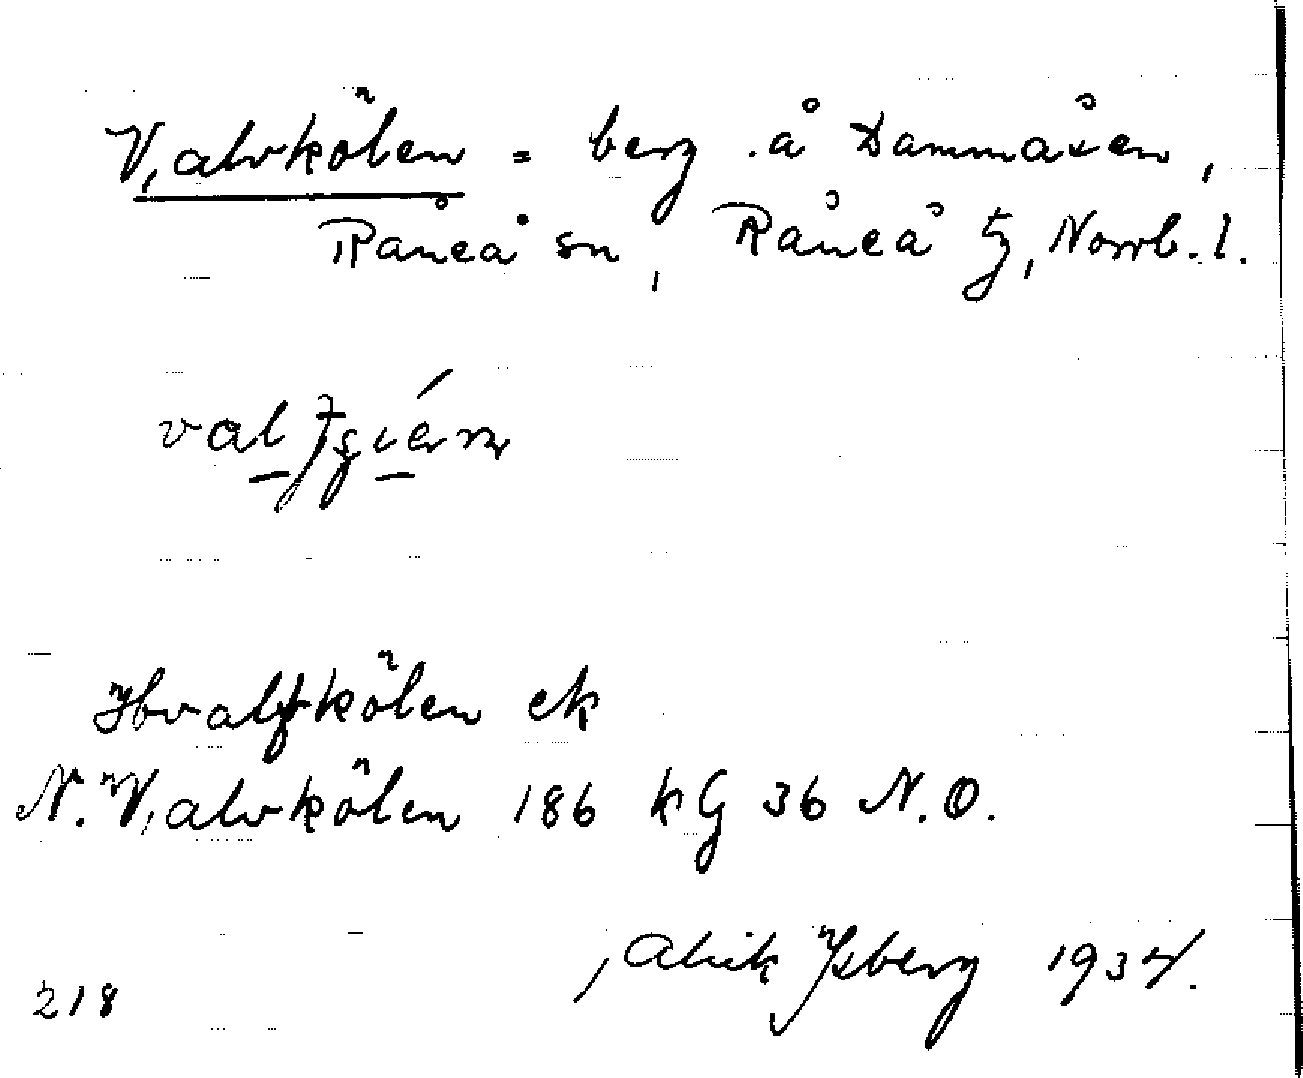 Valvkölen = berg å Dammåsen,
Råneå sn, Råneå tg, Norrb. l.
Hvalfkölen ek
N. Valvkölen 186 kG 36 N.O.
Alrik Ysberg 1934.
218